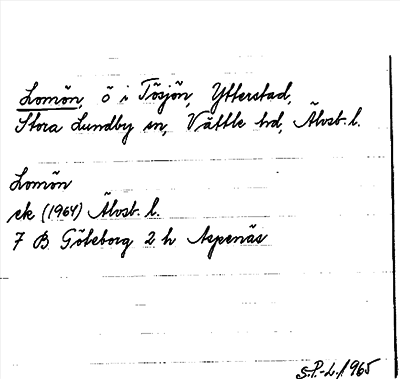 Lomön, ö i Tösjön, Ytterstad,
Stora Lundby sn, Vättle hd, Älvsb. l.
Lomön
ek (1964) Älvsb. l.
7 B Göteborg 2 h Aspenäs
S.P.-L. 1965